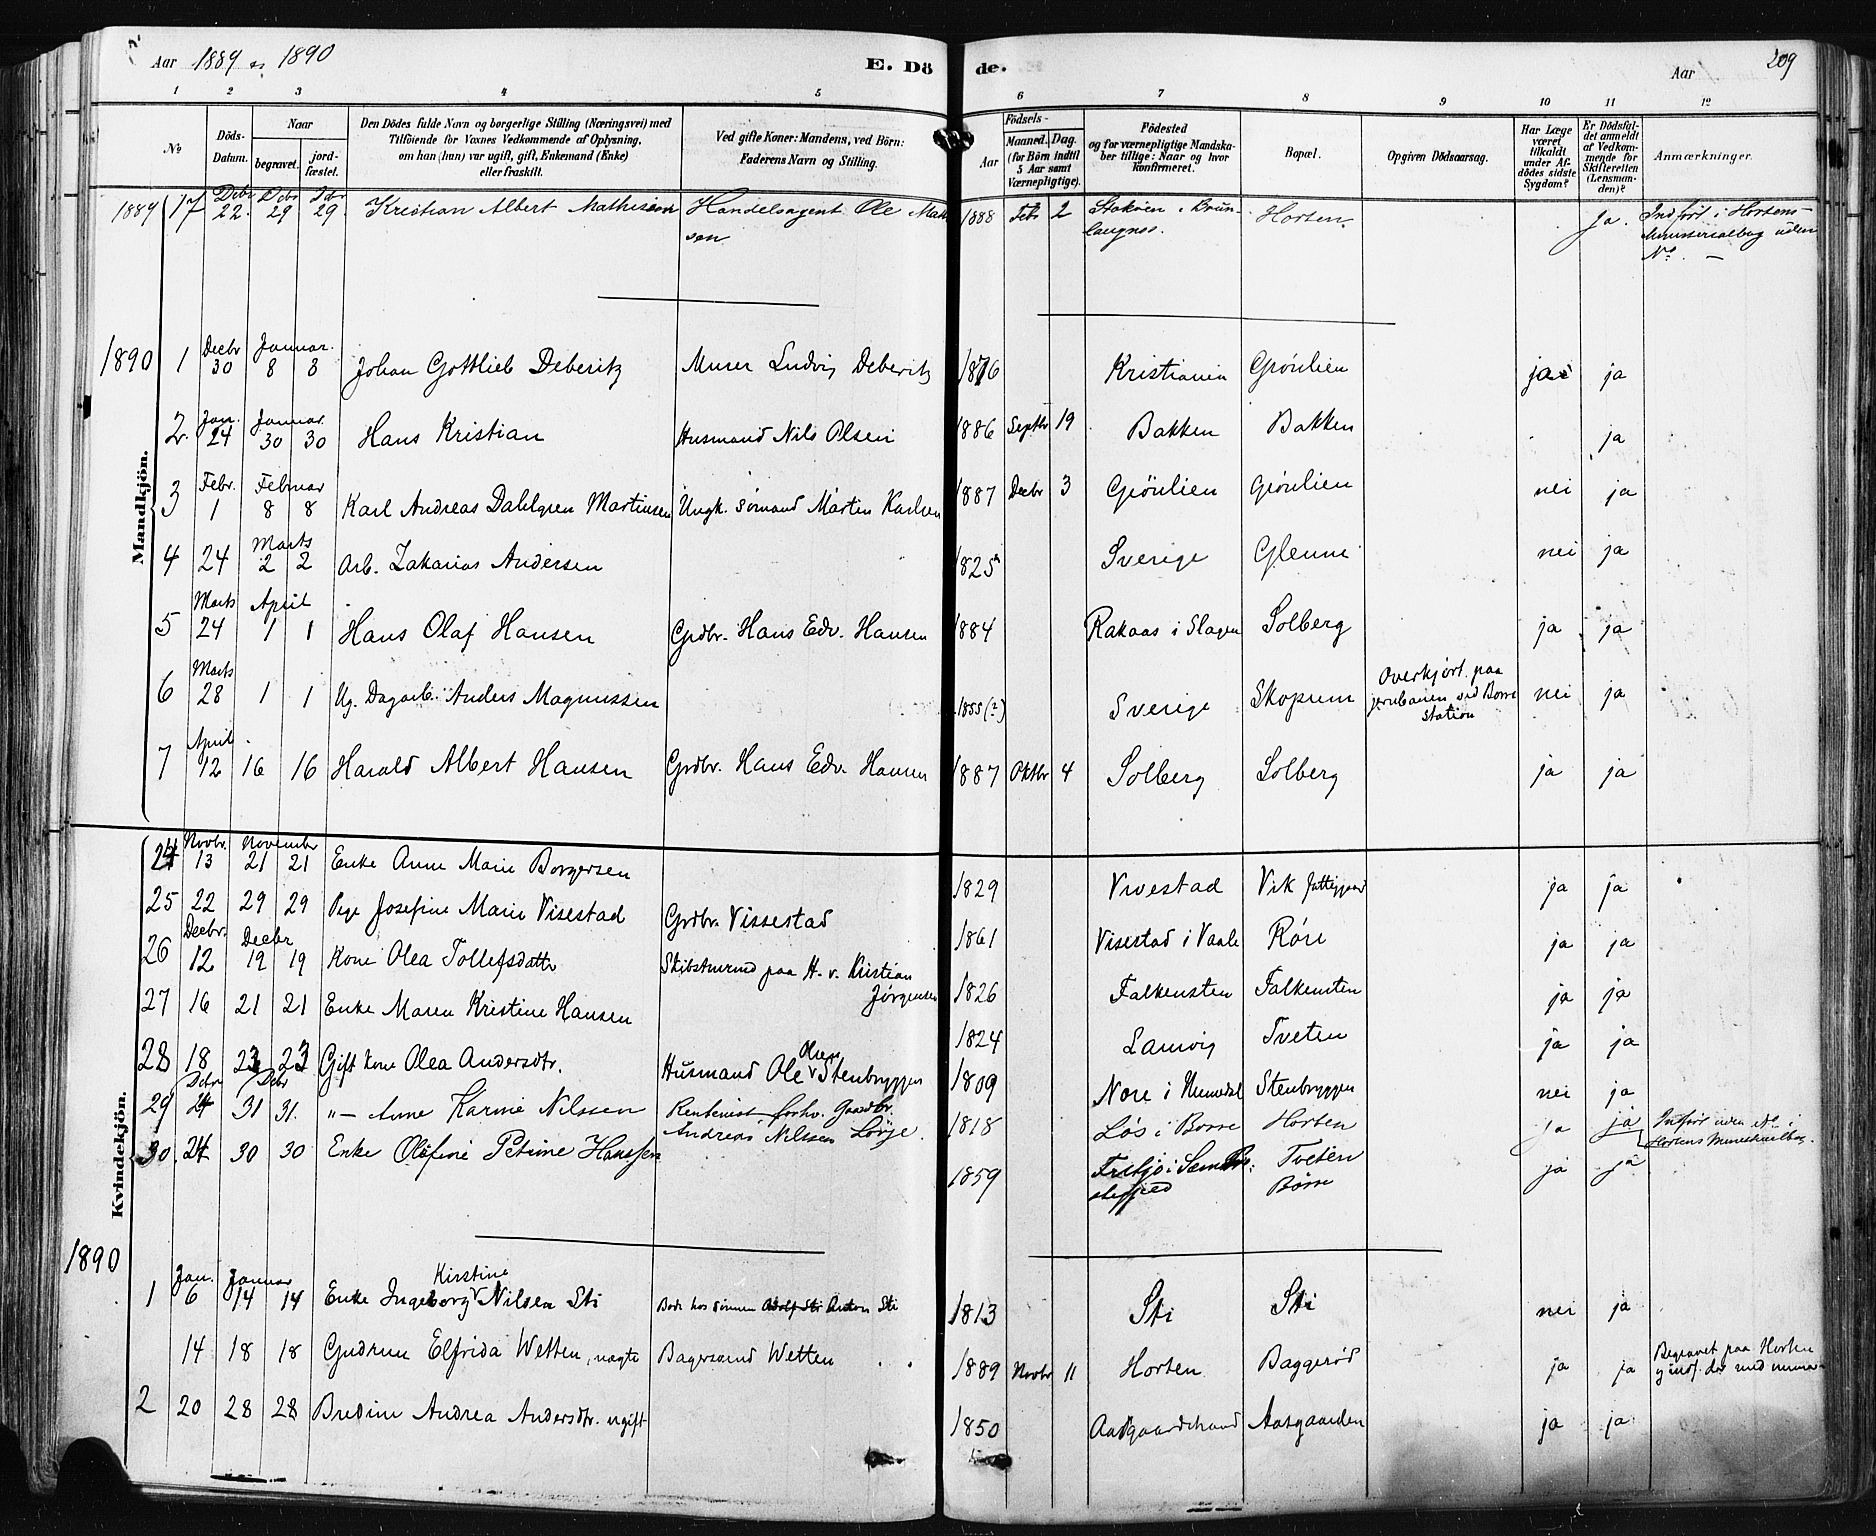 Aar 1889 og 1890 E. Döde. Aar 209
1 2 3 4 5 6 7 8 9 10 11 12
No
Döds-Datum.
Naar
begravet.
jord-fæstet.
Den Dödes fulde Navn og borgerlige Stilling (Næringsvei) med
Tilföiende for Voxnes Vedkommende af Oplysning,
om han (hun) var ugift, gift, Enkemand (Enke)
eller fraskilt.
Ved gifte Koner: Mandens, ved Börn:
Faderens Navn og Stilling.
Födsels-
Aar
Maaned. Dag.
(for Börn indtil
5 Aar samt
Værnepligtige).
Födested
og for værnepligtige Mandska-
ber tillige: Naar og hvor
konfirmeret.
Bopæl.
Opgiven Dödsaarsag.
Har Læge
været
tilkaldt
under Af-
dödes sidste
Sygdom?
Er Dödsfal-
det anmeldt
af Vedkom-
mende for
Skifteretten
(Lensman-
den)?
Anmærkninger.
Mandkjön.
1889 17 Debr 22. Debr 29 Debr 29. Kristian Albert Mathisen Handelsagent Ole Mathisen 1888 Feb 2 Stokøen i Brunlaugnes. Horten. Ja. Indført i Hortens Ministerialbog uden No. —
1890 1 Decbr 30 Januar. 8 8 Johan Gottlieb Deberitz Murer Ludvig Deberitz 1876 Kristiania Grönlien ja ja
2 Jan. 24 Januar 30 30 Hans Kristian Husmand Nils Olsen 1886 Septbr 19 Bakken Bakken ja
3 Febr. 1 Februar 8 8 Karl Andreas Dahlgren Martinsen Ungk. sömand Martin Karlsen 1887 Decbr 3 Grönlien Grönlien nei ja
4 24 Marts 2 2 Arb. Zakarias Andersen 1825 Sverige Glenne nei ja
5 Marts 24 April 1 1 Hans Olaf Hansen Grdbr. Hans Edv. Hansen 1884 Rakaas i Slagen Solberg ja ja
6 Marts 28 1 1 Ug. Dagarb. Anders Magnussen 1855(?) Sverige Skopum Overkjört paa jernbanen ved Borre Station nei ja
7 April 12 16 16 Harald Albert Hansen Grdbr. Hans Edv. Hansen 1887 Oktbr 4 Solberg Solberg ja ja
Kvindekjön.
24 Novbr. 13 November 21 21 Enke Anne Marie Borgersen 1829 Vivestad Vik fattiggaard ja ja
25 22 29 29 Pige Josefine Marie Visestad Grdbr. Vissestad 1861 Visestad i Vaale Röre ja ja
26 Decbr. 12 Decbr 19 19 Kone Olea Tollefsdatter Skibstømmermd paa H. v. Kristian Jörgensen 1826 Falkensten Falkensten ja ja
27 16 21 21 Enke Maren Kristine Hansen 1824 Laurvig Tveten ja ja
28 18 23 23 Gift kone Olea Andersdtr. Husmand Ole Olsen Stenbryggen 1809 Nore i Numedal Stenbryggen nei ja
29 Debr 24 Debr 31 31. "— Anne Karine Nilssen Rentenist forhv. Gaardbr. Andreas Nilssen Lörje. 1818 Lös i Borre Horten ja ja Indført uden No i Hortens Ministerialbog.
30. 24 30 30 Enke Olöfine Petrine Hanssen 1859 i Sem Præstegjeld Tveten Börre ja ja
1890
1 Jan. 6 Januar 14 14 Enke Ingeborg Kirstine Nilsen Sti Bode hos sönnen Anton Sti 1813 Sti Sti nei ja
14 18 18 Gudrun Elfrida Wetten, uægte Bagersvend Wetten 1889 Novbr 11 Horten Baggeröd ja ja Begravet paa Horten og indf. der med numer
2 20 28 28 Bredine Andrea Andersdtr. ugift 1850 Aasgaardstrand Aasgaarden ja ja